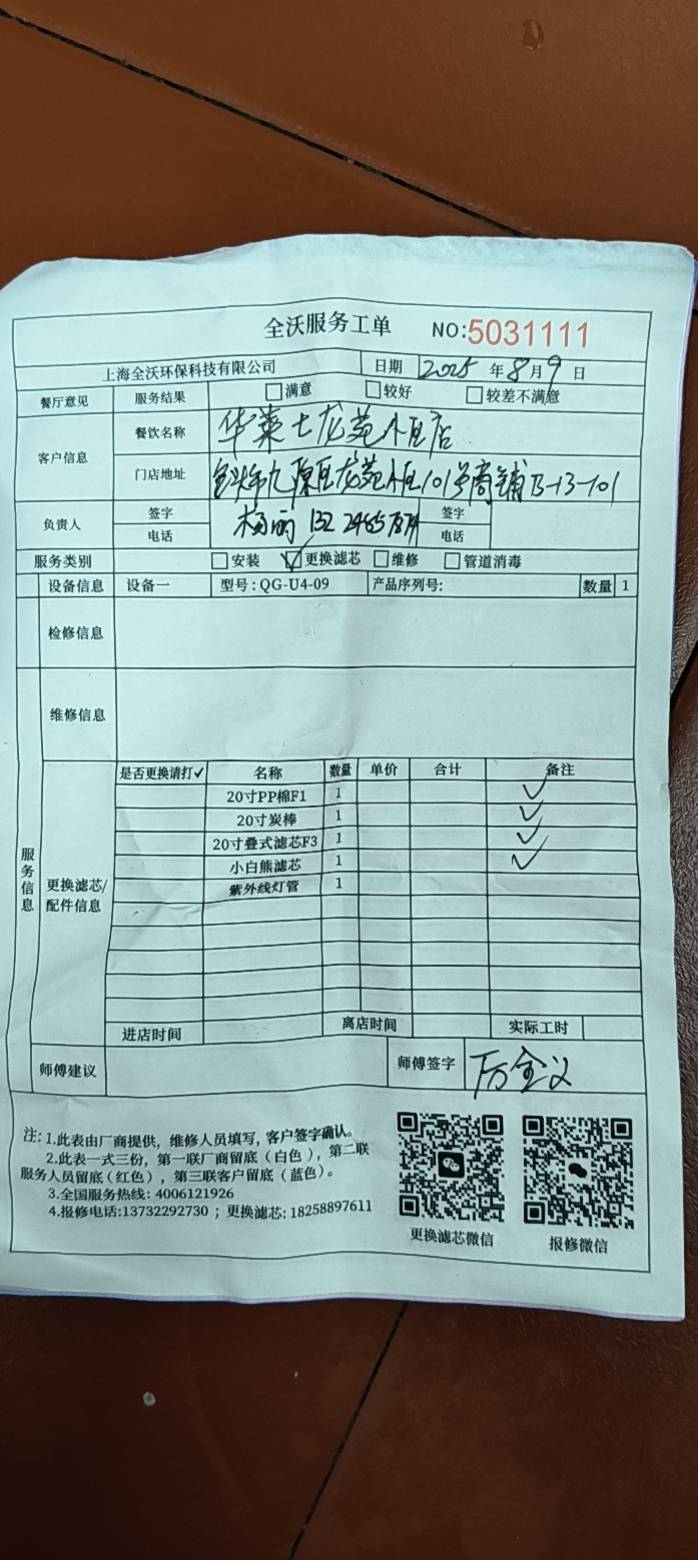 全沃服务工单 NO:5031111
上海全沃环保科技有限公司 日期 2025 年 8 月 9 日
餐厅意见 服务结果 满意 较好 较差不满意
客户信息 餐饮名称 华莱士龙苑小区店
门店地址 包头市九原区龙苑小区101号商铺B-13-101
负责人 签字 杨丽 签字
电话 132 2465 电话
服务类别 安装 ✓更换滤芯 维修 管道消毒
设备信息 设备一 型号:QG-U4-09 产品序列号: 数量 1
检修信息
维修信息
服务信息
更换滤芯/配件信息
是否更换请打✓ 名称 数量 单价 合计 备注
20寸PP棉F1 1 ✓
20寸炭棒 1 ✓
20寸叠式滤芯F3 1 ✓
小白熊滤芯 1 ✓
紫外线灯管 1
进店时间 离店时间 实际工时
师傅建议 师傅签字 厉全义
注: 1.此表由厂商提供，维修人员填写，客户签字确认。
2.此表一式三份，第一联厂商留底（白色），第二联
服务人员留底（红色），第三联客户留底（蓝色）。
3.全国服务热线: 4006121926
4.报修电话:13732292730 ；更换滤芯: 18258897611
更换滤芯微信 报修微信